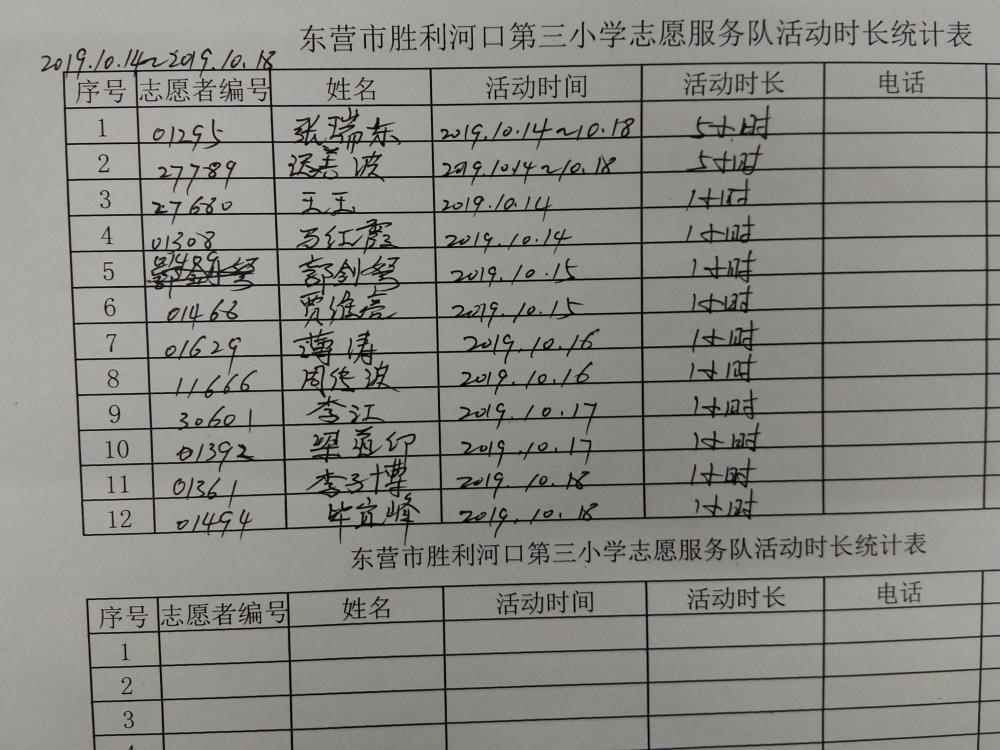 东营市胜利河口第三小学志愿服务队活动时长统计表
2019.10.14~2019.10.18
序号 志愿者编号 姓名 活动时间 活动时长 电话
1 01295 张瑞东 2019.10.14~10.18 5小时
2 27789 迟美波 2019.10.14~10.18 5小时
3 27680 王玉 2019.10.14 1小时
4 01308 马红霞 2019.10.14 1小时
5 01489 郭剑 2019.10.15 1小时
6 01468 贾维 2019.10.15 1小时
7 01629 薄涛 2019.10.16 1小时
8 11666 周传波 2019.10.16 1小时
9 30601 李江 2019.10.17 1小时
10 01392 梁 印 2019.10.17 1小时
11 01361 李子博 2019.10.18 1小时
12 01494 毕宜峰 2019.10.18 1小时
东营市胜利河口第三小学志愿服务队活动时长统计表
序号 志愿者编号 姓名 活动时间 活动时长 电话
1
2
3